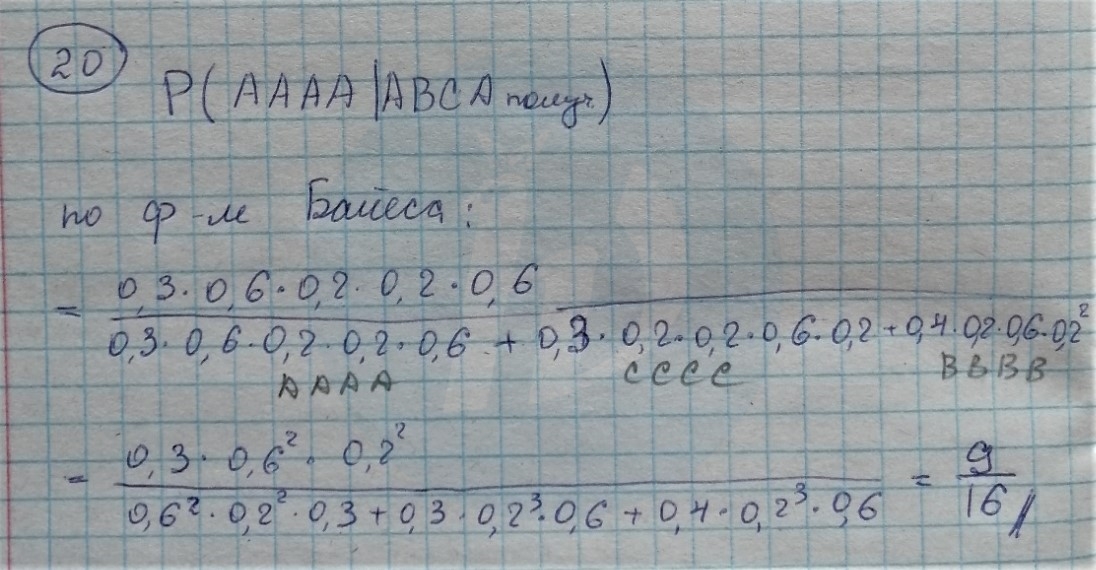 20
P(AAAA|ABCA получ.)
по ф-ле Байеса:
= 0,3·0,6·0,2·0,2·0,6
0,3·0,6·0,2·0,2·0,6 + 0,3·0,2·0,2·0,6·0,2+0,4·0,2·0,6·0,2²
AAAA CCCC BBBB
= 0,3·0,6²·0,2²
0,6²·0,2²·0,3+0,3·0,2³·0,6+0,4·0,2³·0,6
= 9
16